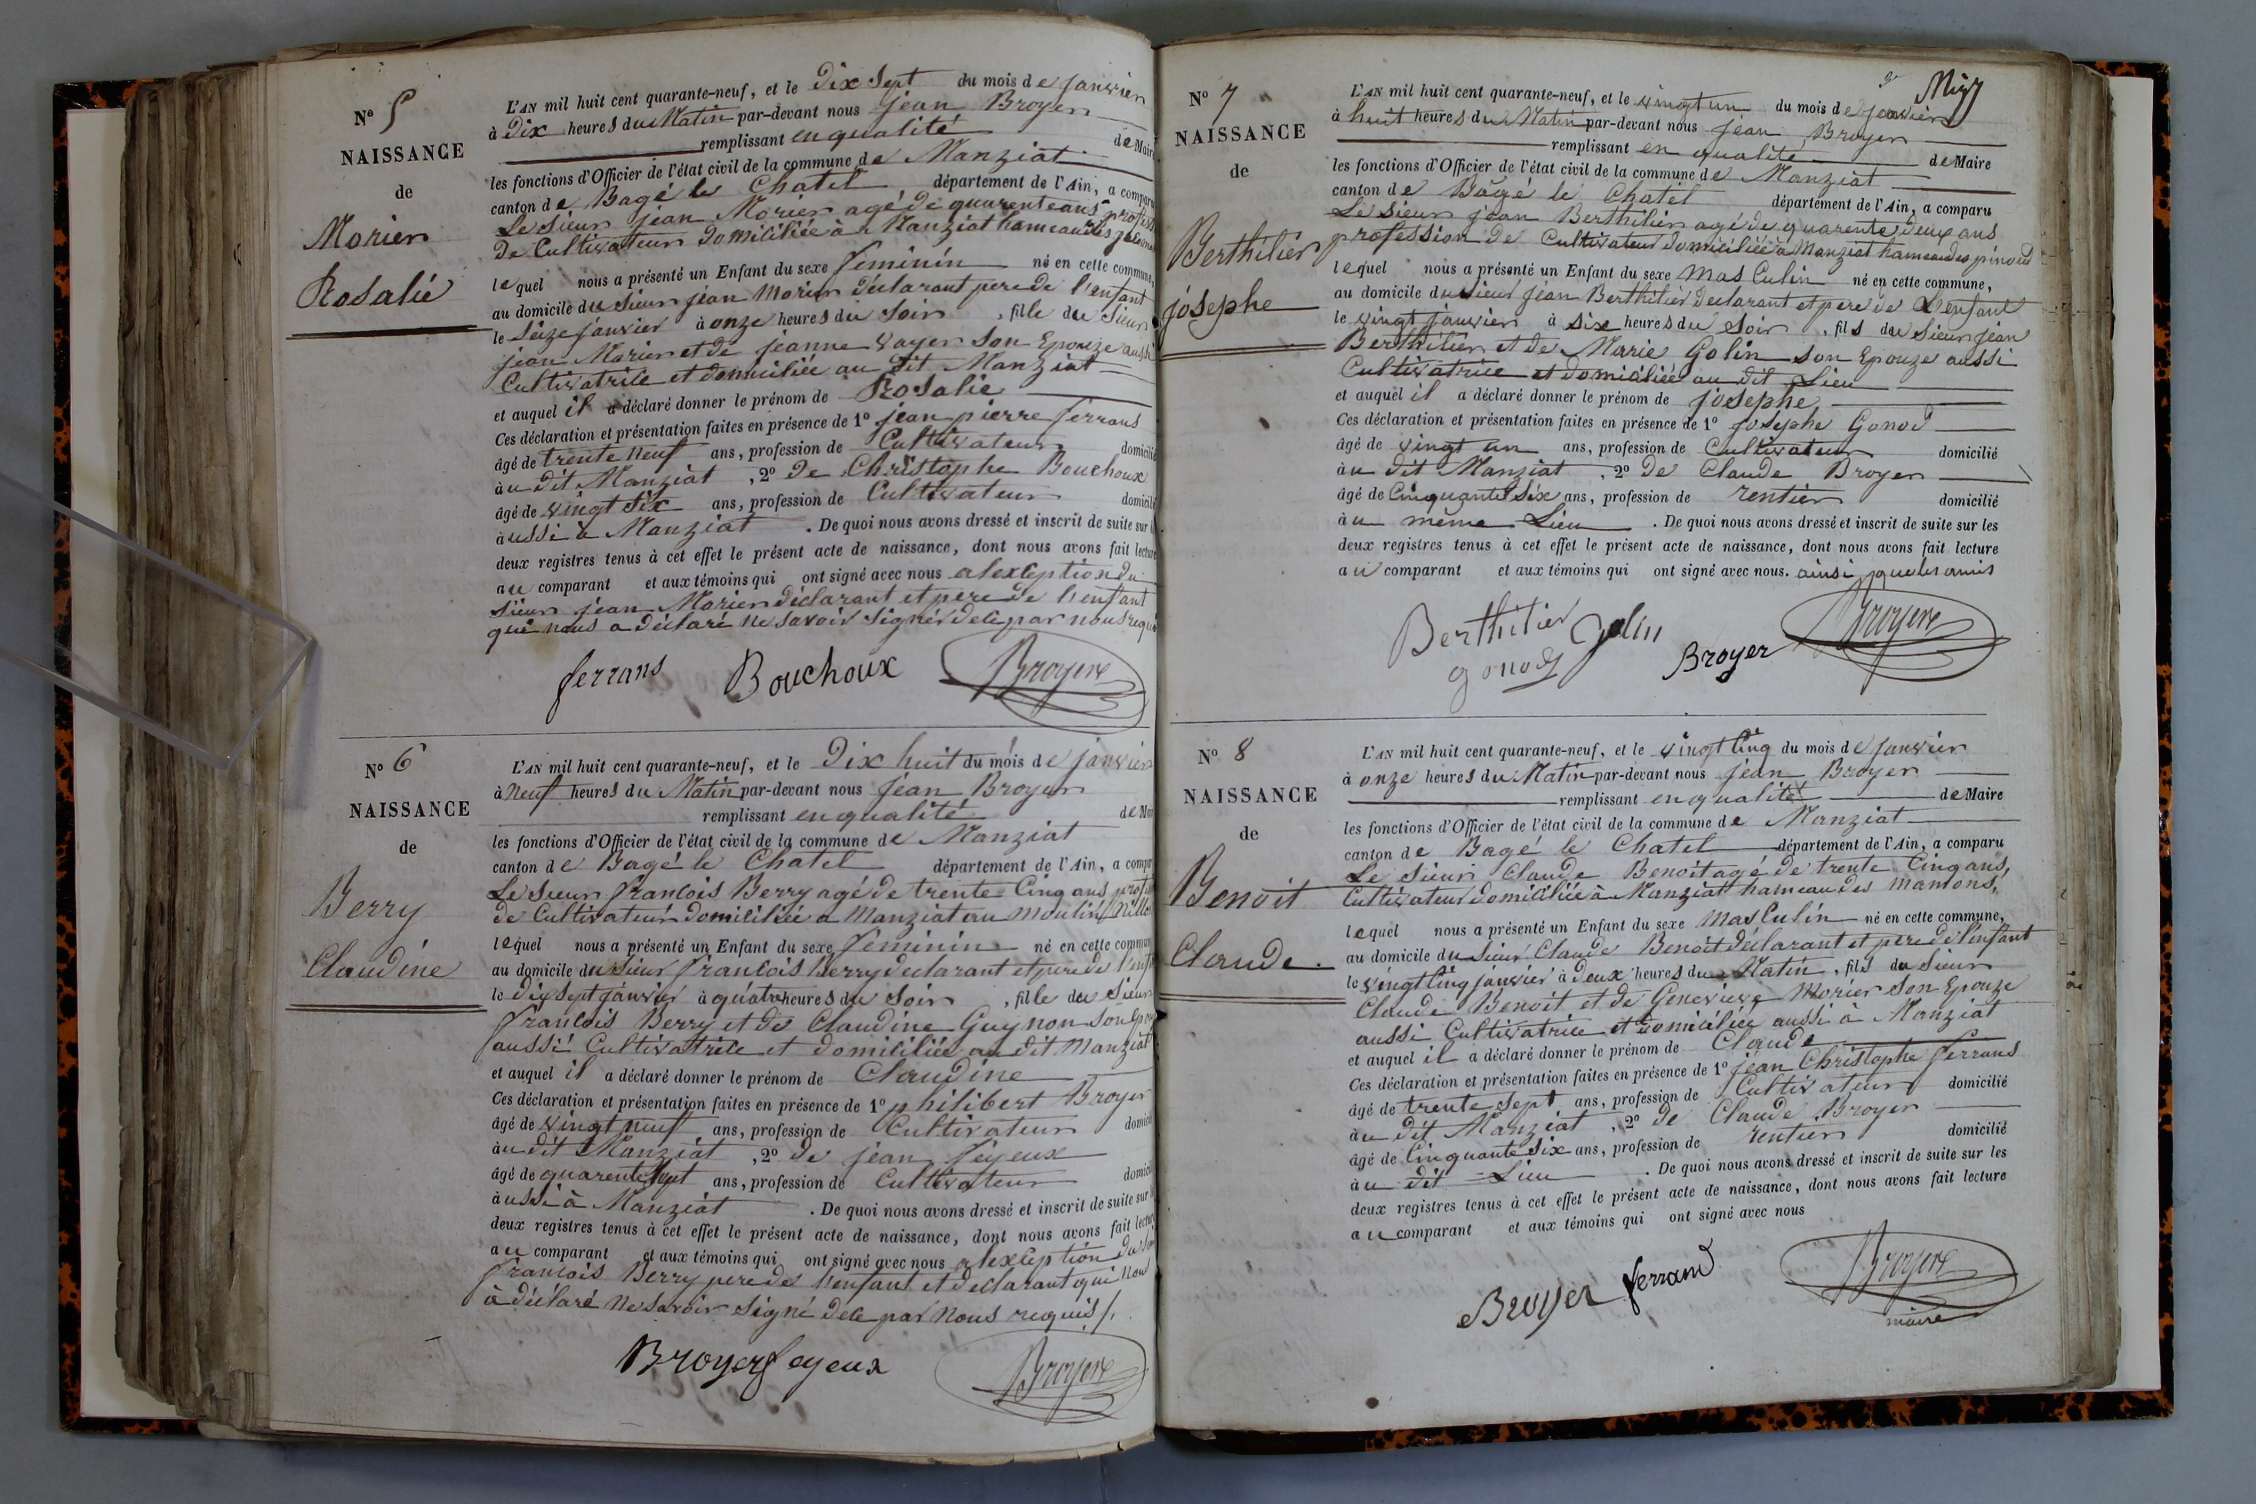 N° 5
NAISSANCE
de
Morier
Rosalie
L'AN mil huit cent quarante-neuf, et le Dix Sept du mois de janvier
à Dix heures du Matin par-devant nous jean Broyer
remplissant en qualité de Maire
les fonctions d'Officier de l'état civil de la commune de Manziat
canton de Bagé le Chatel département de l'Ain, a comparu
Le Sieur jean Morier agé de quarente ans profess
de Cultivateur domiciliée à Manziat hameau des
lequel nous a présenté un Enfant du sexe feminin né en cette commune,
au domicile du sieur jean Morier declarant pere de l'enfant
le Seize janvier à onze heures du Soir, fille du Sieur
jean Morier et de jeanne voyer Son Epouze aussi
Cultivatrice et domiciliée au dit Manziat
et auquel il a déclaré donner le prénom de Rosalie
Ces déclaration et présentation faites en présence de 1° jean pierre ferrans
âgé de trente neuf ans, profession de Cultivateur domicilié
au dit Manziat, 2° de Christophe Bouchoux
âgé de vingt Six ans, profession de Cultivateur domicilié
aussi à Manziat. De quoi nous avons dressé et inscrit de suite sur l
deux registres tenus à cet effet le présent acte de naissance, dont nous avons fait lecture
au comparant et aux témoins qui ont signé avec nous alexception du
sieur jean Morier déclarant et pere de l'enfant
qui nous a déclaré ne savoir signer dele par nous requi
ferrans Bouchoux Broyer
N° 6
NAISSANCE
de
Berry
Claudine
L'AN mil huit cent quarante-neuf, et le Dix huit du mois de janvier
à Neuf heures du Matin par-devant nous jean Broyer
remplissant en qualité de Mai
les fonctions d'Officier de l'état civil de la commune de Manziat
canton de Bagé le Chatel département de l'Ain, a compar
Le Sieur francois Berry agé de trente Cinq ans profess
de Cultivateur domiciliée à Manziat au moulin
lequel nous a présenté un Enfant du sexe feminin né en cette commun
au domicile du sieur francois Berry declarant et pere de l'enf
le dix sept janvier à quatre heures du Soir, fille du Sieur
francois Berry et de Claudine Guynon Son Epou
aussi Cultivatrice et domiciliée au dit Manziat
et auquel il a déclaré donner le prénom de Claudine
Ces déclaration et présentation faites en présence de 1° philibert Broyer
âgé de vingt neuf ans, profession de Cultivateur domicil
au dit Manziat, 2° de jean feyeux
âgé de quarente Sept ans, profession de Cultivateur domici
aussi à Manziat. De quoi nous avons dressé et inscrit de suite sur l
deux registres tenus à cet effet le présent acte de naissance, dont nous avons fait lectur
au comparant et aux témoins qui ont signé avec nous alexception du
francois Berry pere de l'enfant et declarant qui nou
à déclaré ne savoir signé dele par nous requis
Broyer feyeux Broyer
N° 7
NAISSANCE
de
Berthilier
josephe
L'AN mil huit cent quarante-neuf, et le vingt un du mois de janvier
à huit heures du Matin par-devant nous jean Broyer
remplissant en qualité de Maire
les fonctions d'Officier de l'état civil de la commune de Manziat
canton de Bagé le Chatel département de l'Ain, a comparu
Le Sieur jean Berthilier agé de quarente deux ans
profession de Cultivateur domiciliée à Manziat hameau des pinoud
lequel nous a présenté un Enfant du sexe masculin né en cette commune,
au domicile du sieur jean Berthilier declarant et pere de L'enfant
le vingt janvier à Six heures du Soir, fils du Sieur jean
Berthilier et de Marie Golin son Epouze aussi
Cultivatrice et domiciliée au dit Lieu
et auquel il a déclaré donner le prénom de josephe
Ces déclaration et présentation faites en présence de 1° josephe Gonod
âgé de vingt un ans, profession de Cultivateur domicilié
au dit Manziat, 2° de Claude Broyer
âgé de Cinquante Six ans, profession de rentier domicilié
au même Lieu. De quoi nous avons dressé et inscrit de suite sur les
deux registres tenus à cet effet le présent acte de naissance, dont nous avons fait lecture
au comparant et aux témoins qui ont signé avec nous. ainsi que les amis
Berthilier Golin Broyer
gonod Broyer
N° 8
NAISSANCE
de
Benoit
Claude
L'AN mil huit cent quarante-neuf, et le vingt Cinq du mois de janvier
à onze heures du Matin par-devant nous jean Broyer
remplissant en qualité de Maire
les fonctions d'Officier de l'état civil de la commune de Manziat
canton de Bagé le Chatel département de l'Ain, a comparu
Le Sieur Claude Benoit agé de trente Cinq ans,
Cultivateur domiciliée à Manziat hameau des mantons,
lequel nous a présenté un Enfant du sexe masculin né en cette commune,
au domicile du sieur Claude Benoit déclarant et pere de l'enfant
le vingt Cinq janvier à deux heures du Matin, fils du Sieur
Claude Benoit et de Genevieve Morier Son Epouze
aussi Cultivatrice et domiciliée aussi à Manziat
et auquel il a déclaré donner le prénom de Claude
Ces déclaration et présentation faites en présence de 1° jean Christophe ferrans
âgé de trente Sept ans, profession de Cultivateur domicilié
au dit Manziat, 2° de Claude Broyer
âgé de Cinquante Six ans, profession de rentier domicilié
au dit Lieu. De quoi nous avons dressé et inscrit de suite sur les
deux registres tenus à cet effet le présent acte de naissance, dont nous avons fait lecture
au comparant et aux témoins qui ont signé avec nous
Broyer ferrand Broyer
maire